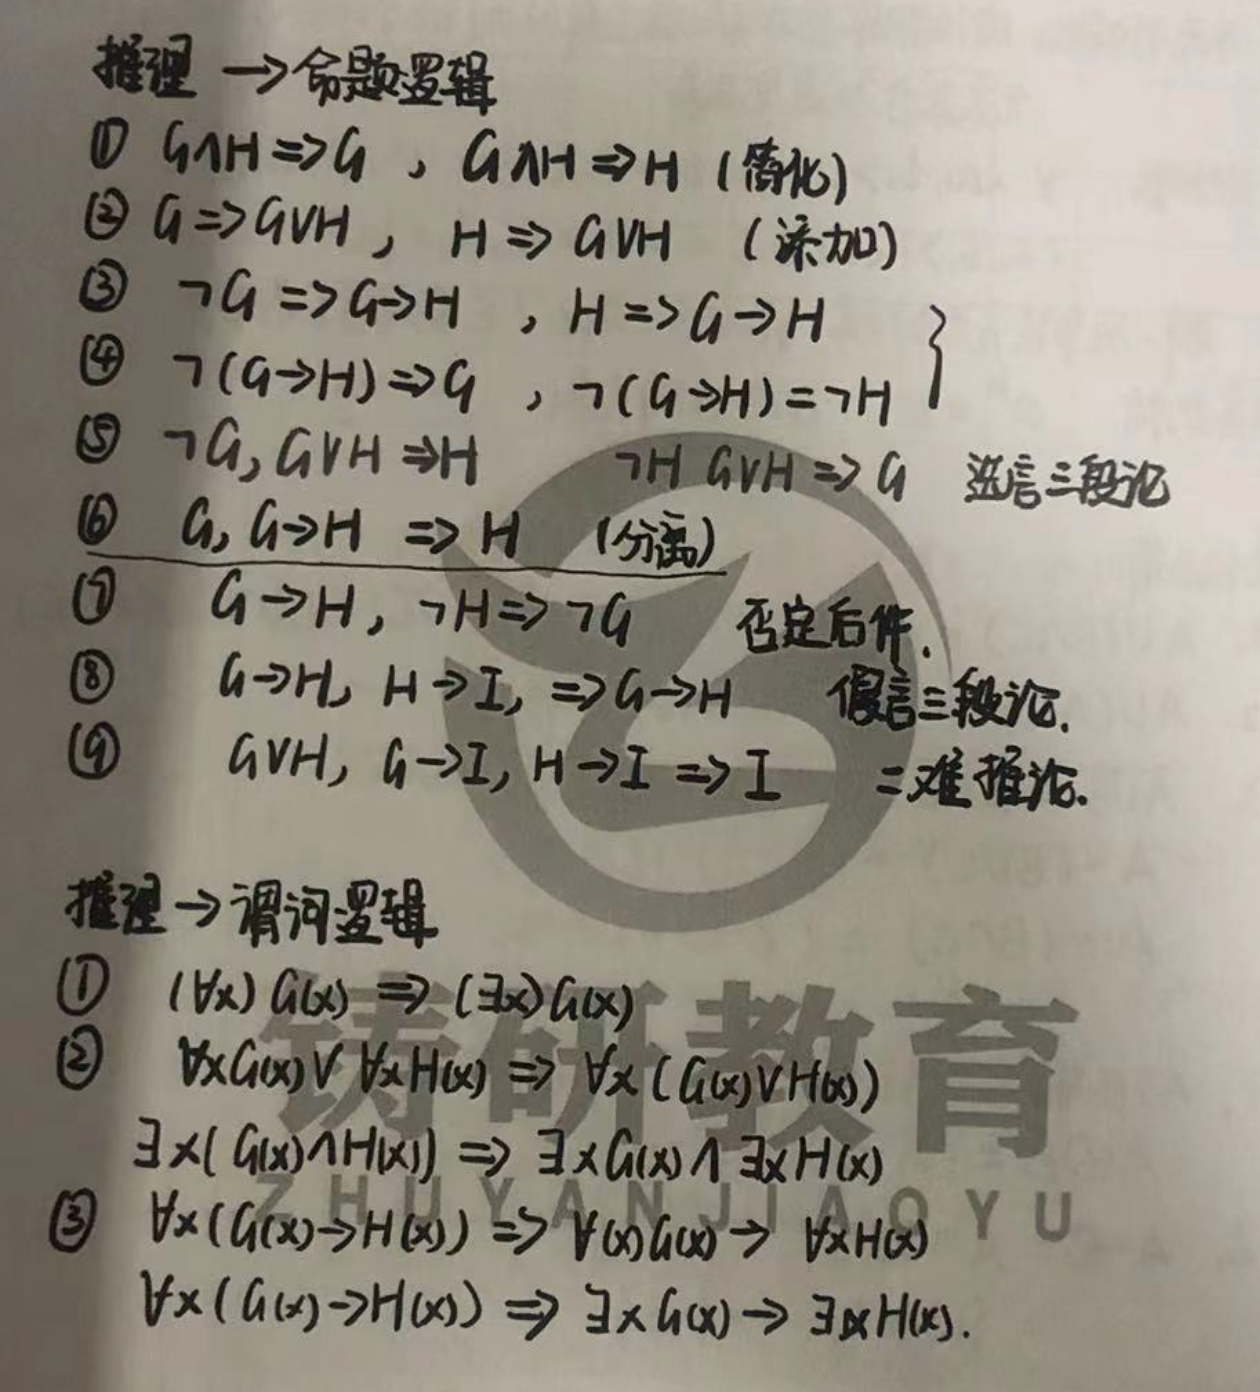 推理 →命题逻辑
① G∧H=>G , G∧H=>H (简化)
② G=>G∨H, H=>G∨H (添加)
③ ¬G=>G→H , H=>G→H
④ ¬(G→H)=>G , ¬(G→H)=¬H
⑤ ¬G, G∨H=>H ¬H G∨H=>G 选言三段论
⑥ G, G→H =>H (分离)
⑦ G→H, ¬H=>¬G 否定后件.
⑧ G→H, H→I, =>G→H 假言三段论.
⑨ G∨H, G→I, H→I =>I 二难推论.
推理→谓词逻辑
① (∀x)G(x) => (∃x)G(x)
② ∀xG(x)∨ ∀xH(x) => ∀x(G(x)∨H(x))
∃x(G(x)∧H(x)) => ∃xG(x)∧∃xH(x)
③ ∀x(G(x)→H(x)) => ∀(x)G(x)→ ∀xH(x)
∀x(G(x)→H(x)) => ∃xG(x)→∃xH(x).
铸研教育
ZHUYANJIAOYU